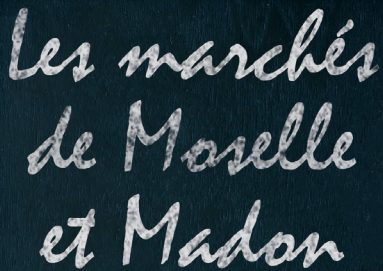 Les marchés
de Moselle
et Madon